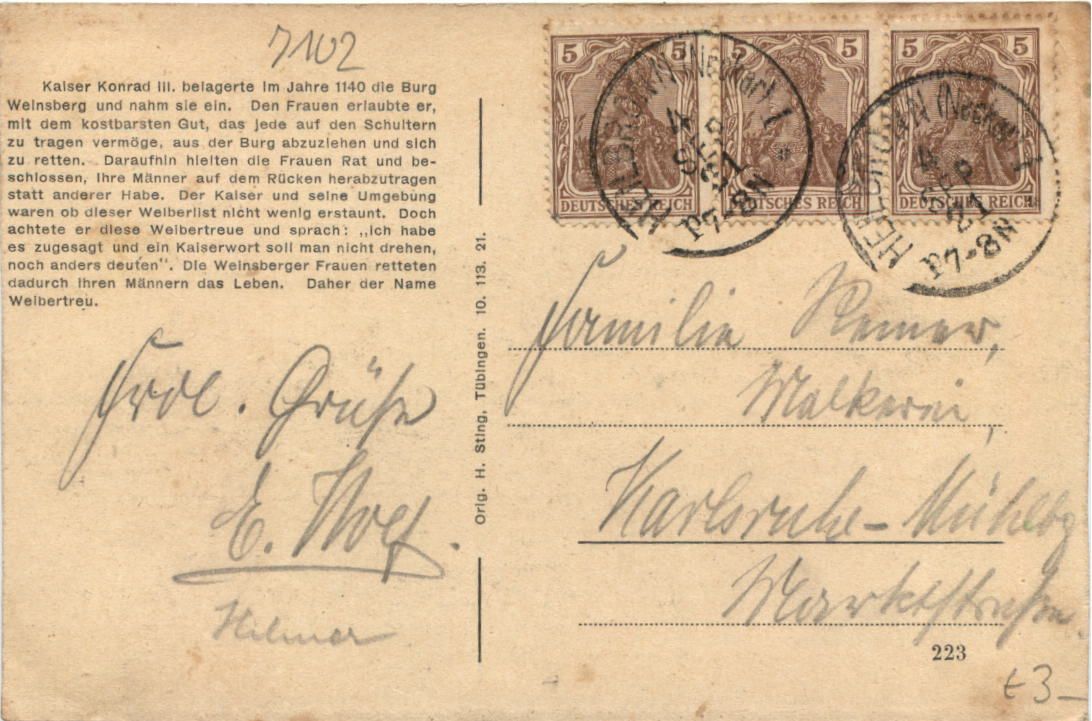 7102
Kaiser Konrad III. belagerte im Jahre 1140 die Burg
Weinsberg und nahm sie ein. Den Frauen erlaubte er,
mit dem kostbarsten Gut, das jede auf den Schultern
zu tragen vermöge, aus der Burg abzuziehen und sich
zu retten. Daraufhin hielten die Frauen Rat und be-
schlossen, ihre Männer auf dem Rücken herabzutragen
statt anderer Habe. Der Kaiser und seine Umgebung
waren ob dieser Weiberlist nicht wenig erstaunt. Doch
achtete er diese Weibertreue und sprach: „Ich habe
es zugesagt und ein Kaiserwort soll man nicht drehen,
noch anders deuten“. Die Weinsberger Frauen retteten
dadurch ihren Männern das Leben. Daher der Name
Weibertreu.
5 5
DEUTSCHES REICH
5 5
DEUTSCHES REICH
5 5
DEUTSCHES REICH
HEILBRONN (Neckar) 1
4 SEP 21
7-8N
HEILBRONN (Neckar) 1
4 SEP 21
7-8N
Orig. H. Sting, Tübingen. 10. 113. 21.
Frdl. Grüße
E.
Familie
Molkerei,
Karlsruhe-Mühlbg
Marktstraße
223